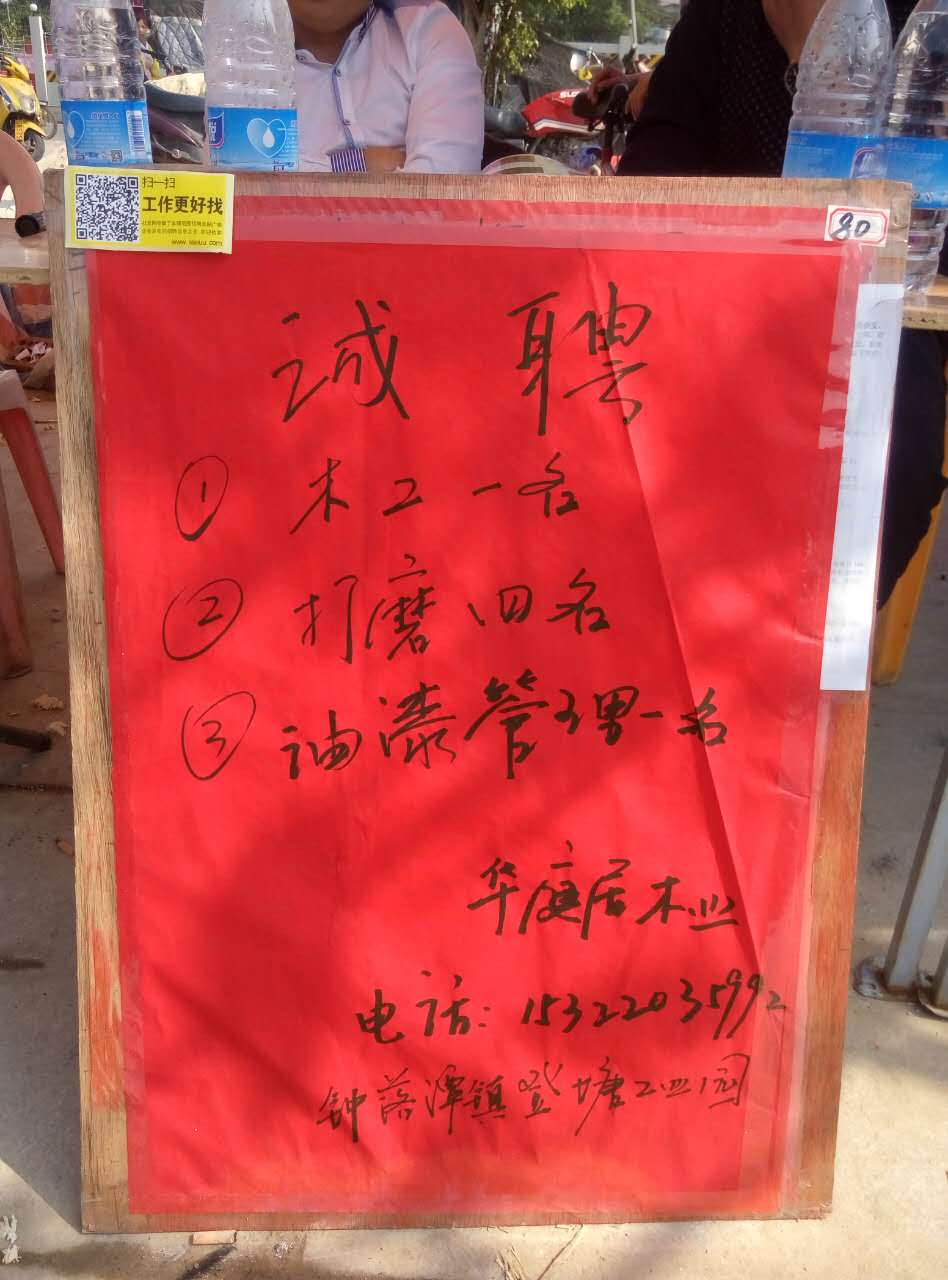 扫一扫
工作更好找
80
诚 聘
① 木工一名
② 打磨四名
③ 油漆管理一名
华庭居木业
电话: 15322035992
钟落潭镇登塘工业园